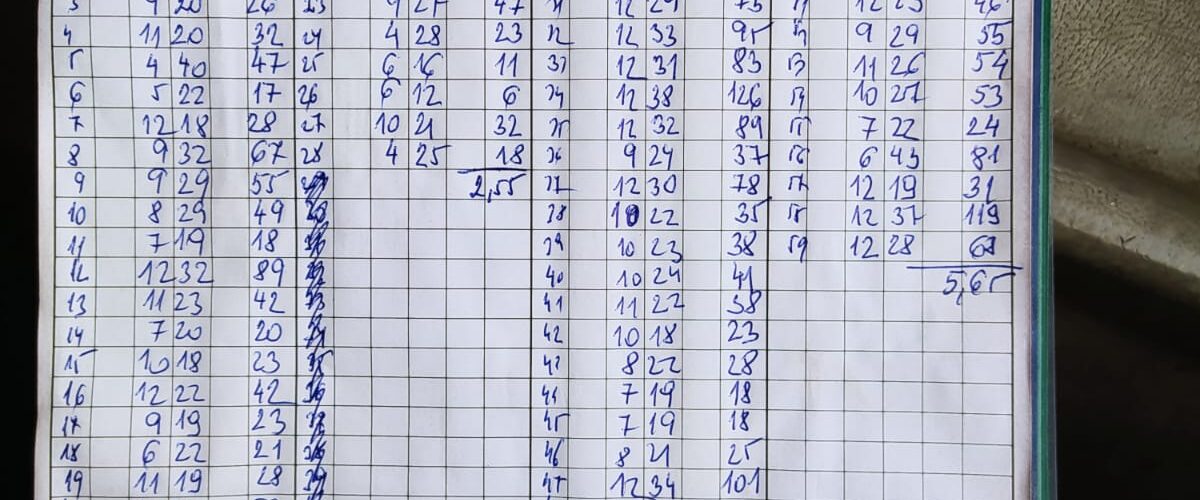 3 9 20 26 23 9 27 47 31 12 29 73 12 23 46
4 11 20 32 24 4 28 23 32 12 33 95 52 9 29 55
5 4 40 47 25 6 16 11 33 12 31 83 53 11 26 54
6 5 22 17 26 6 12 6 34 12 38 126 54 10 27 53
7 12 18 28 27 10 21 32 35 12 32 89 55 7 22 24
8 9 32 67 28 4 25 18 36 9 24 37 56 6 43 81
9 9 29 55 2,55 37 12 30 78 57 12 19 31
10 8 29 49 38 10 22 35 58 12 37 119
11 7 19 18 39 10 23 38 59 12 28 68
12 12 32 89 40 10 24 41 5,65
13 11 23 42 41 11 22 38
14 7 20 20 42 10 18 23
15 10 18 23 43 8 22 28
16 12 22 42 44 7 19 18
17 9 19 23 45 7 19 18
18 6 22 21 46 8 21 25
19 11 19 28 47 12 34 101